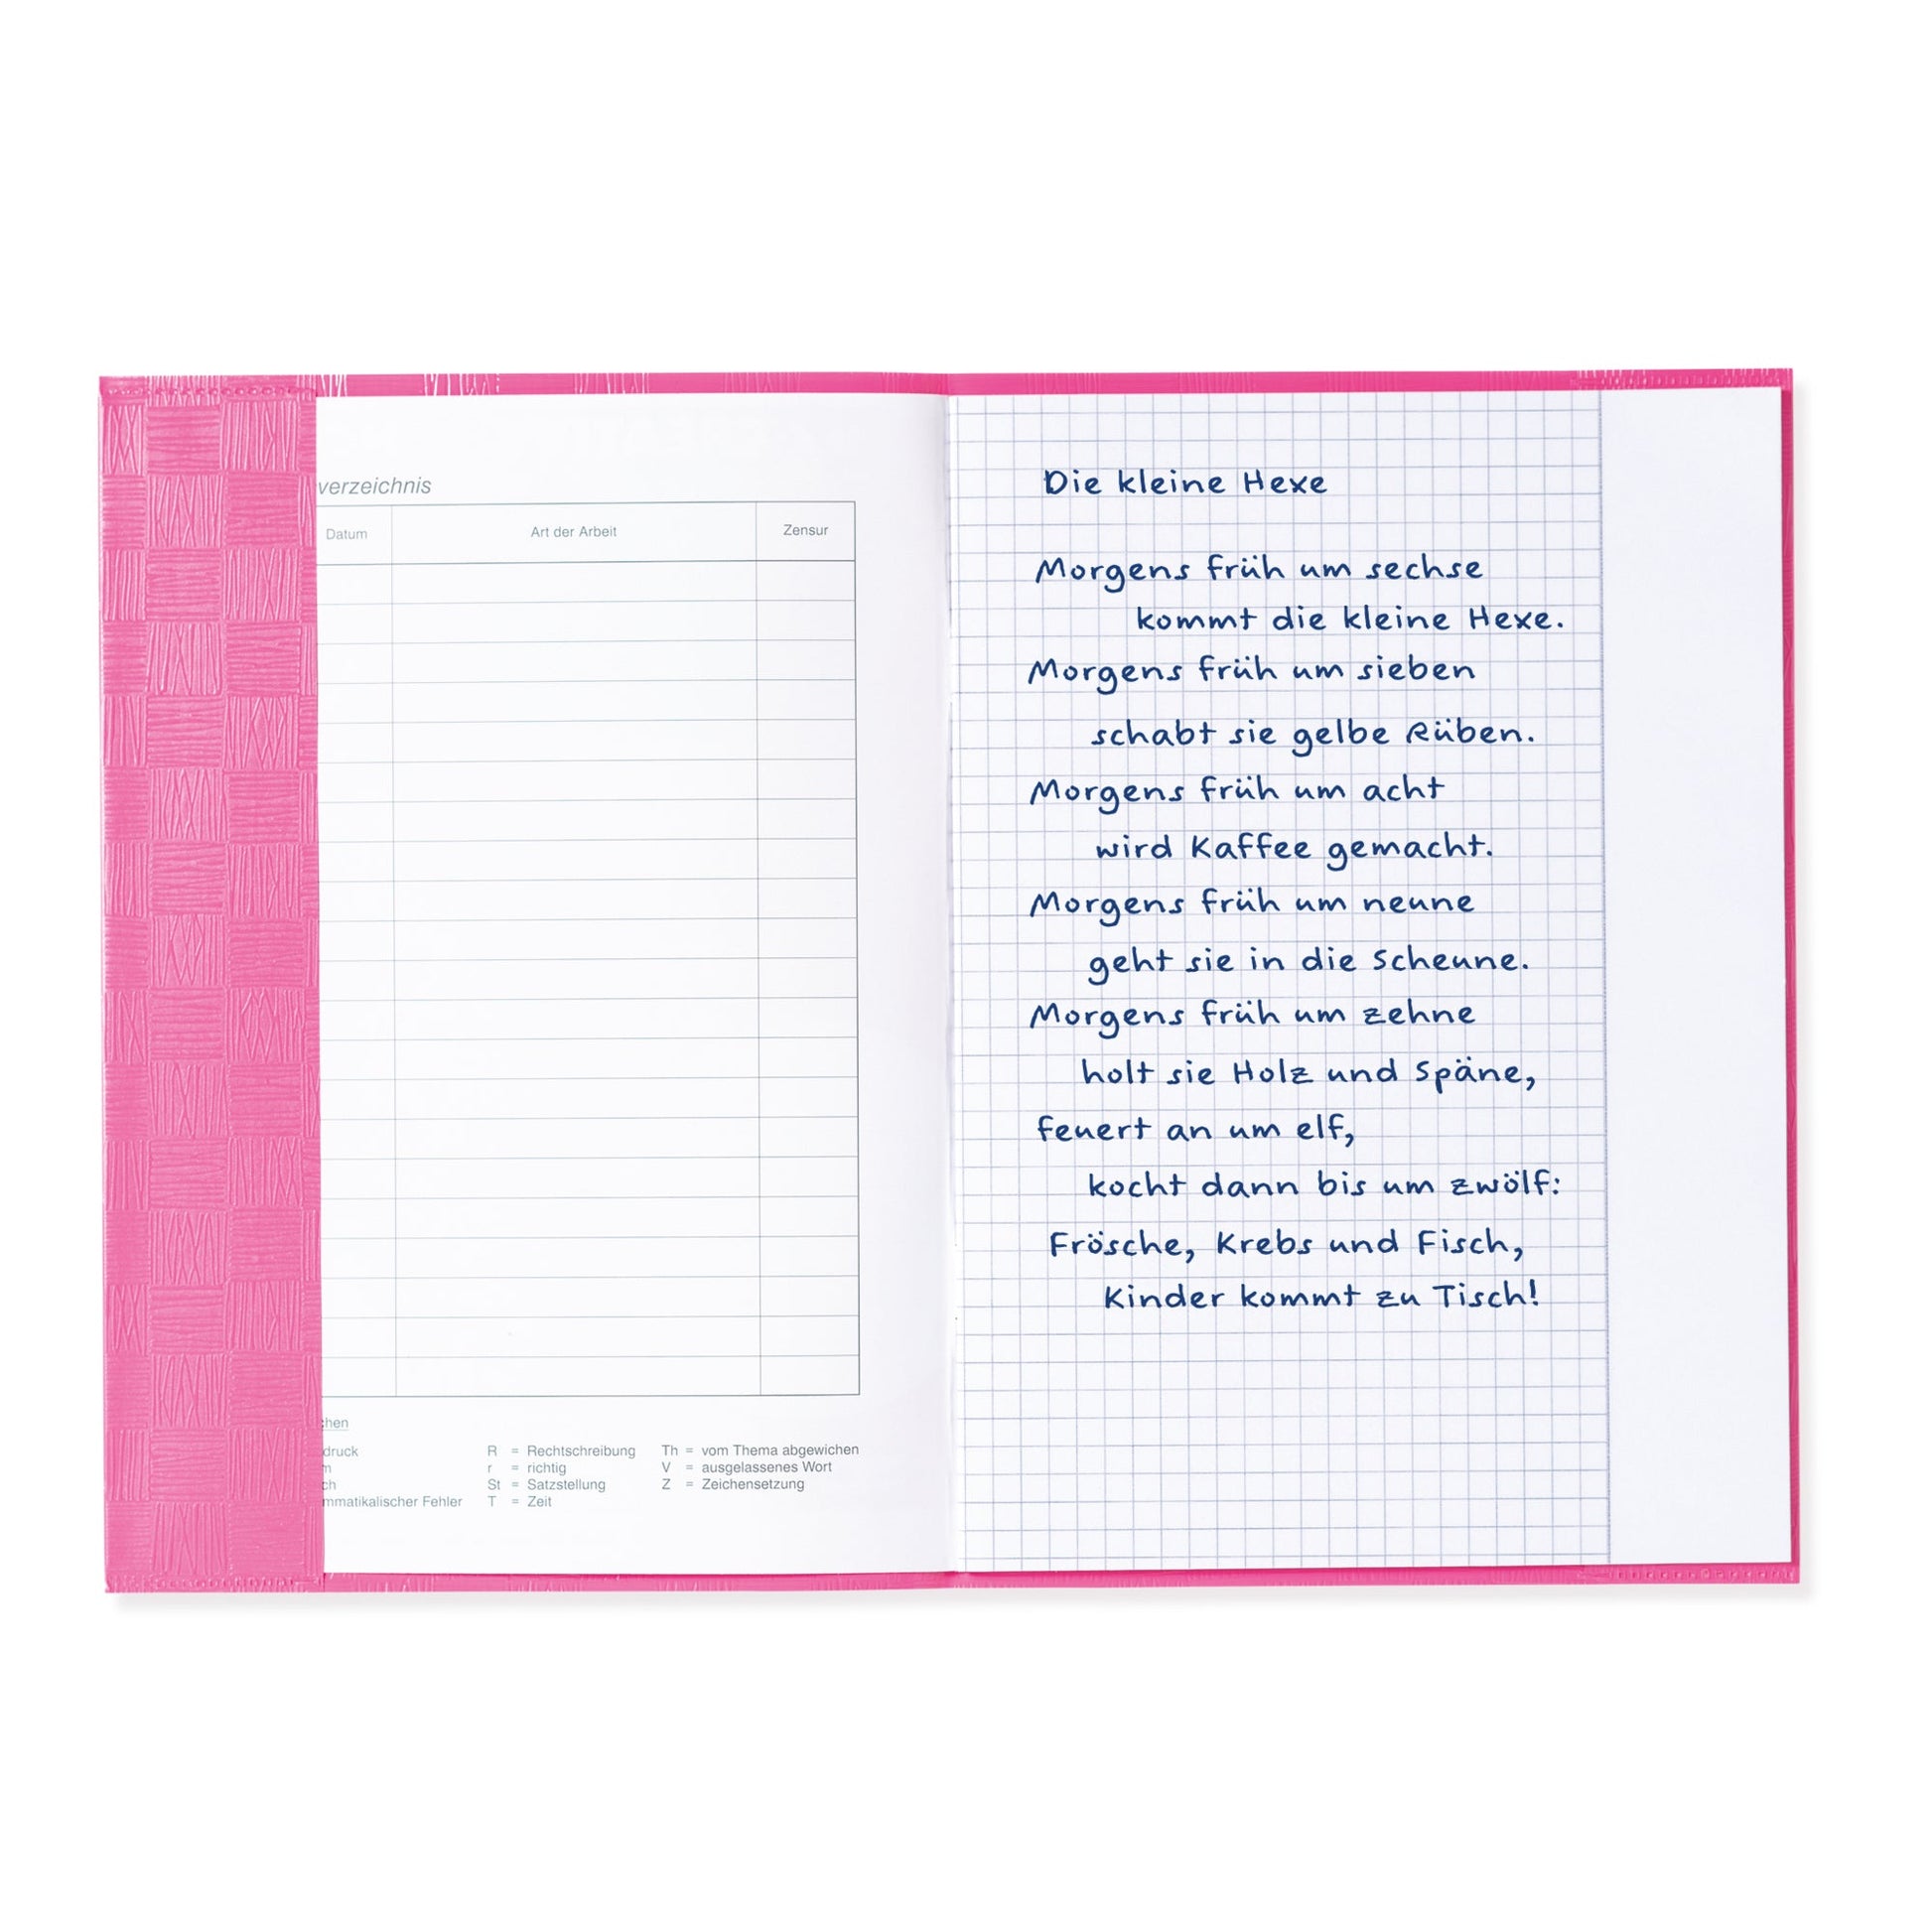 verzeichnis
Datum Art der Arbeit Zensur
chen
druck R = Rechtschreibung Th = vom Thema abgewichen
m r = richtig V = ausgelassenes Wort
ch St = Satzstellung Z = Zeichensetzung
mmatikalischer Fehler T = Zeit
Die kleine Hexe
Morgens früh um sechse
kommt die kleine Hexe.
Morgens früh um sieben
schabt sie gelbe Rüben.
Morgens früh um acht
wird Kaffee gemacht.
Morgens früh um neune
geht sie in die Scheune.
Morgens früh um zehne
holt sie Holz und Späne,
feuert an um elf,
kocht dann bis um zwölf:
Frösche, Krebs und Fisch,
Kinder kommt zu Tisch!